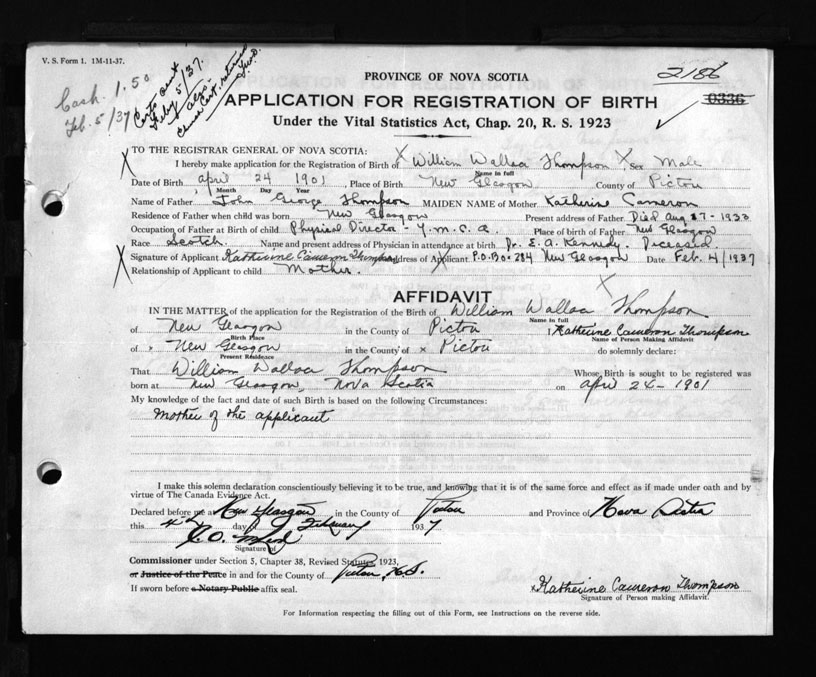 V. S. Form 1. 1M-11-37.
Cash 1.50
Feb. 5/37
Cert. sent
Feby 5/37.
also
Church Cert. returned
PROVINCE OF NOVA SCOTIA
2186
0336
APPLICATION FOR REGISTRATION OF BIRTH
Under the Vital Statistics Act, Chap. 20, R. S. 1923
TO THE REGISTRAR GENERAL OF NOVA SCOTIA:
I hereby make application for the Registration of Birth of William Wallace Thompson Sex Male
Name in full
Date of Birth april 24 1901, Place of Birth New Glasgow County of Pictou
Month Day Year
Name of Father John George Thompson MAIDEN NAME of Mother Katherine Cameron
Residence of Father when child was born New Glasgow Present address of Father Died Aug 27-1933
Occupation of Father at Birth of child Physical Director - Y.M.C.A. Place of birth of Father New Glasgow
Race Scotch. Name and present address of Physician in attendance at birth Dr. E. A. Kennedy. Deceased.
Signature of Applicant Katherine Cameron Thompson Address of Applicant P.O. Box 284 New Glasgow Date Feb. 4/1937
Relationship of Applicant to child Mother.
AFFIDAVIT
IN THE MATTER of the application for the Registration of the Birth of William Wallace Thompson
Name in full
of New Glasgow in the County of Pictou I Katherine Cameron Thompson
Birth Place Name of Person Making Affidavit
of New Glasgow in the County of Pictou do solemnly declare:
Present Residence
That William Wallace Thompson Whose Birth is sought to be registered was
born at New Glasgow, Nova Scotia on april 24-1901
My knowledge of the fact and date of such Birth is based on the following Circumstances:
Mother of the applicant
I make this solemn declaration conscientiously believing it to be true, and knowing that it is of the same force and effect as if made under oath and by
virtue of The Canada Evidence Act.
Declared before me at New Glasgow in the County of Pictou and Province of Nova Scotia
this 4th day of February 1937
Signature of
Commissioner under Section 5, Chapter 38, Revised Statutes, 1923,
or Justice of the Peace in and for the County of Pictou, N.S.
If sworn before a Notary Public affix seal.
Katherine Cameron Thompson
Signature of Person making Affidavit.
For Information respecting the filling out of this Form, see Instructions on the reverse side.